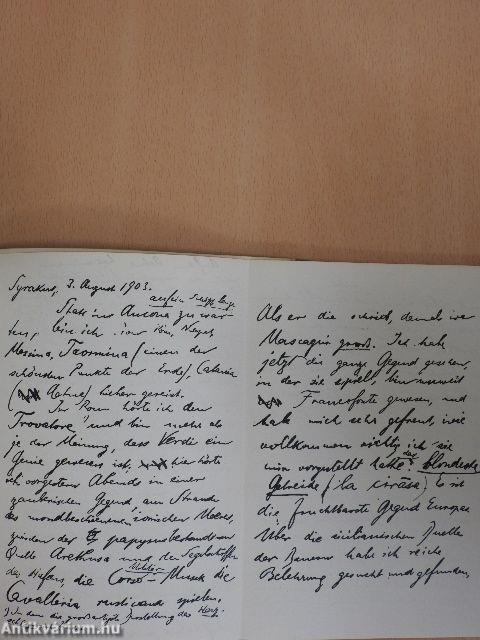 Syrakus, 3. August 1903.
auf ein Schiff lange
Statt in Ancona zu war
ten, bin ich über Rom, Neapel,
Messina, Taormina (einen der
schönsten Punkte der Erde), Catania
(Aetna) hieher gereist.
In Rom hörte ich den
Trovatore, und bin mehr als
je der Meinung, dass Verdi ein
Genie gewesen ist, hier hörte
ich vorgestern Abends in einer
zauberischen Gegend, am Strande
des mondbeschienenen ionischen Meeres,
zwischen der papyrusberühmten
Quelle Arethusa und den Segelschiffen
des Hafens, die Militär-
Corso-Musik die
Cavalleria rusticana spielen.
Als er die schrieb, damals war
Mascagni groß. Ich habe
jetzt die ganze Gegend gesehen,
in der sie spielt, bin unweit
Francoforte gewesen, und
habe mich sehr gefreut, wie
vollkommen richtig ich sie
mir vorgestellt hatte: das blondeste
Getreide (la cirasa) Es ist
die fruchtbarste Gegend Europas
Über die sicilianischen Duelle
der Bauern habe ich reiche
Belehrung gesucht und gefunden,
Antikvárium.hu